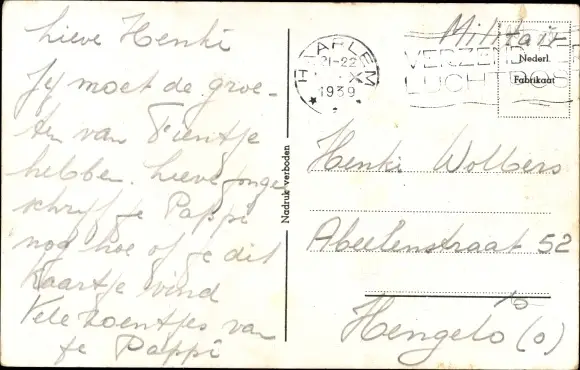 Lieve Henki
Jy moet de groe-
ten van Tientje
hebben. Lieve jonge
schryf je Pappi
nog hoe of je dit
kaartje vind
Vele zoentjes van
je Pappi
Nadruk verboden
HAARLEM
21-22
X
1939
VERZEND
LUCHTPOS
Militair
Nederl.
Fabrikaat
Henki Wolbers
Abeelenstraat 52
Hengelo (o)